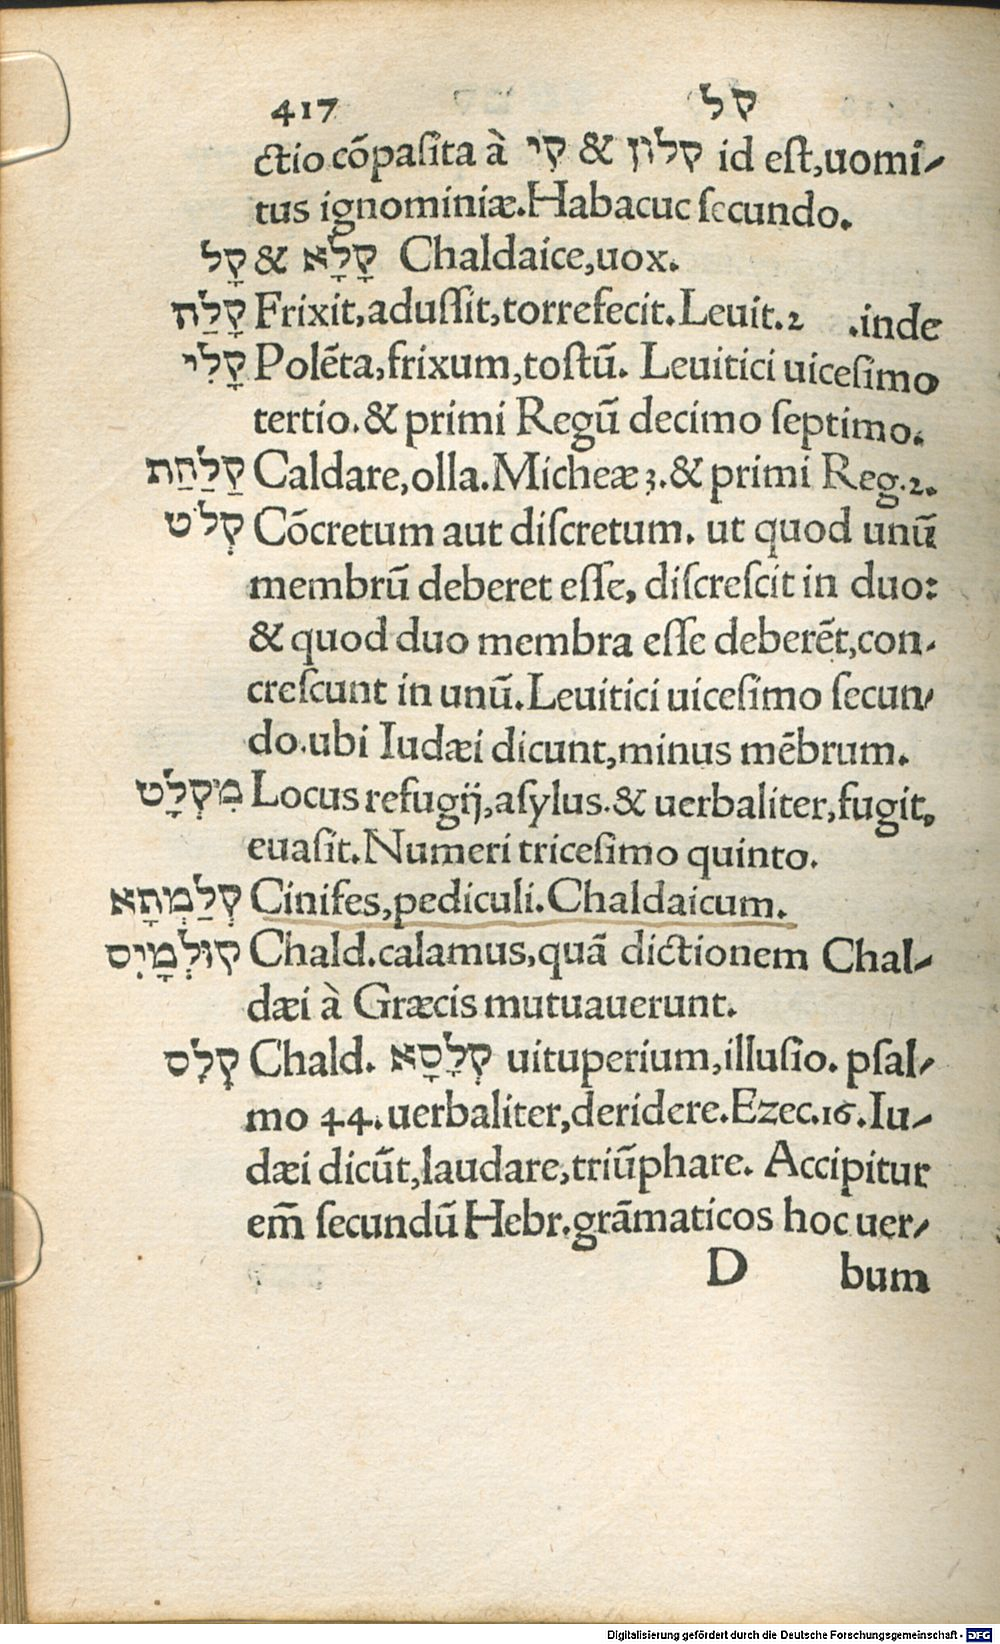 417 קל
ctio cōpasita à קִי & קלון id est,uomi-
tus ignominiæ.Habacuc secundo.
קָל & קָלָא Chaldaice,uox.
קָלַח Frixit,adussit,torrefecit.Leuit.2 .inde
קָלִי Polēta,frixum,tostū. Leuitici uicesimo
tertio.& primi Regū decimo septimo.
קַלַחַת Caldare,olla.Micheæ 3.& primi Reg.2.
קְלֹט Cōcretum aut discretum. ut quod unū
membrū deberet esse, discrescit in duo:
& quod duo membra esse deberēt,con-
crescunt in unū.Leuitici uicesimo secun-
do.ubi Iudæi dicunt,minus mēbrum.
מִקְלָט Locus refugij,asylus.& uerbaliter,fugit,
euasit.Numeri tricesimo quinto.
קְלַמְתָא Cinifes,pediculi.Chaldaicum.
קוּלְמָיִס Chald.calamus,quā dictionem Chal-
dæi à Græcis mutuauerunt.
קֶלֶס Chald. קְלָסָא uituperium,illusio. psal-
mo 44.uerbaliter,deridere.Ezec.16.Iu-
dæi dicūt,laudare,triūphare. Accipitur
em̄ secundū Hebr.grāmaticos hoc uer-
D bum
Digitalisierung gefördert durch die Deutsche Forschungsgemeinschaft - DFG